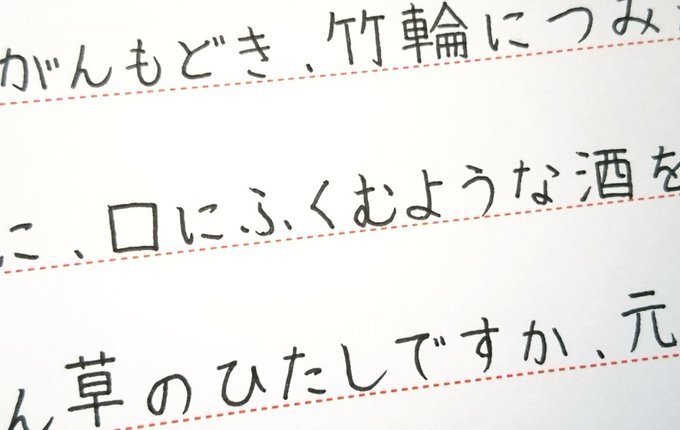 がんもどき、竹輪につみ
に、口にふくむような酒を
ん草のひたしですか、元